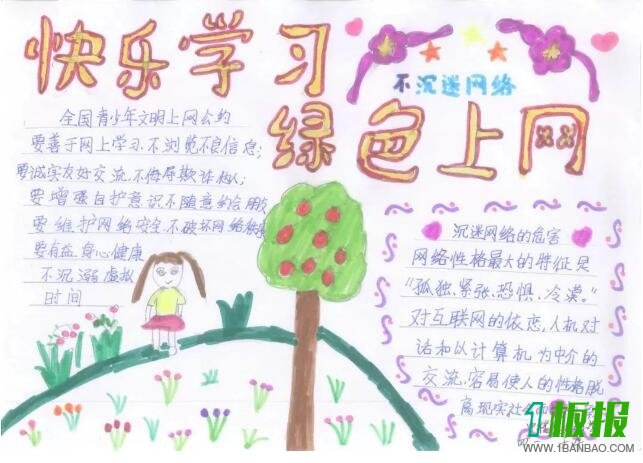 快乐学习
不沉迷网络
绿色上网
全国青少年文明上网公约
要善于网上学习,不浏览不良信息;
要诚实友好交流,不侮辱欺诈他人;
要增强自护意识不随意约会网友
要维护网络安全,不破坏网络秩序
要有益身心健康
不沉溺虚拟
时间
沉迷网络的危害
网络性格最大的特征是
“孤独、紧张、恐惧、冷漠。”
对互联网的依恋,人机对
话和以计算机为中介的
交流,容易使人的性格脱
离现实社会而
1板报
WWW.1BANBAO.COM